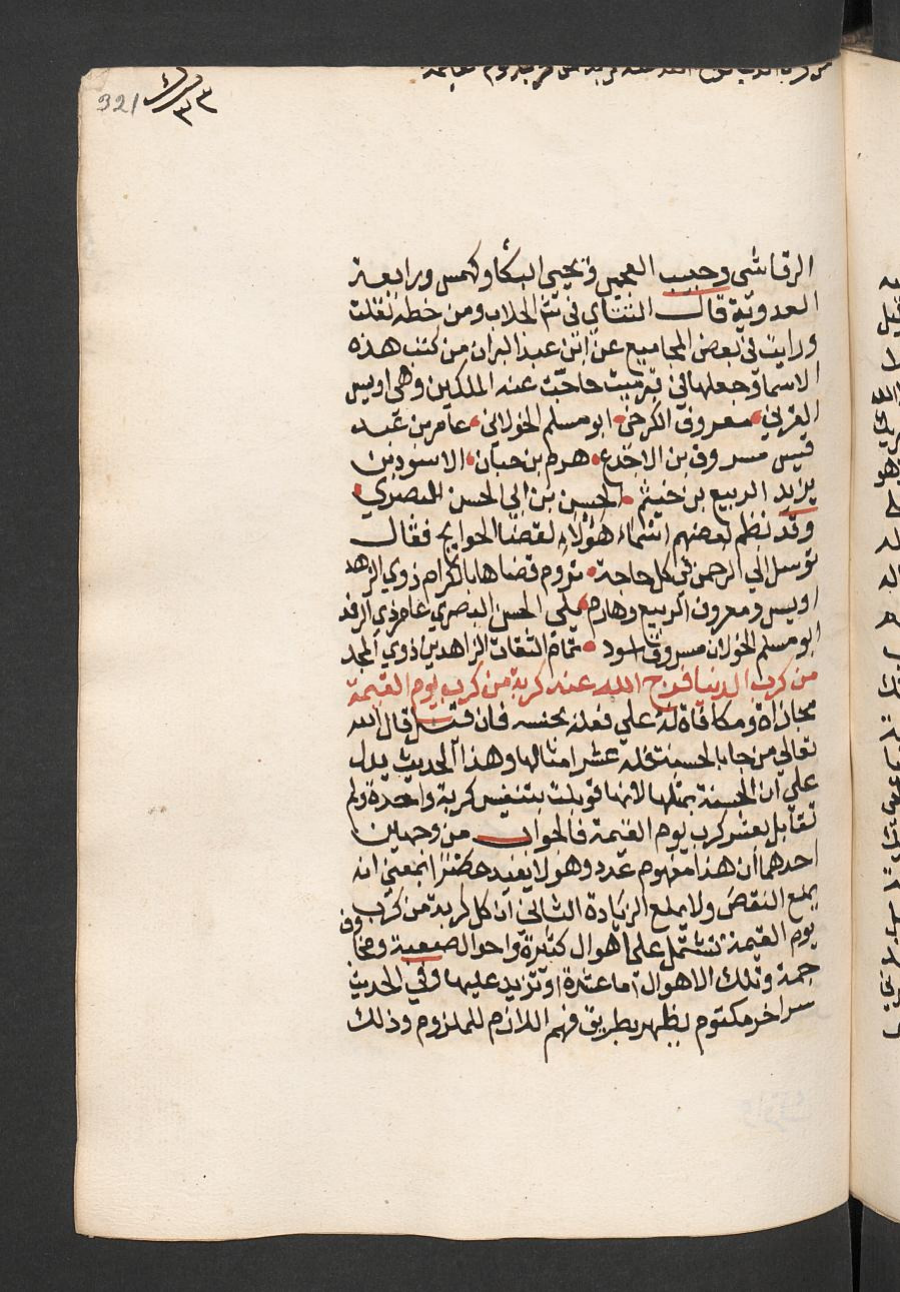 321
٣٣
الرقاشى وحبيب العجمى ويحيى البكا وكهمس ورابعة
العدوية قال التتاى فى الجلاب ومن خطه نقلت
ورايت فى بعض المجاميع عن ابن عبد البر ان من كتب هذه
الاسما وجعلها في بيت حاجت عنه الملكين وهى اويس
القرني معروف الكرخى ابو مسلم الخولاني عامر بن عبد
قيس مسروق بن الاجدع هرم بن حيان الاسود بن
يزيد الربيع بن خيثم الحسن بن ابى الحسن البصري
وقد نظم بعضهم اسماء هؤلاء لقضا الحوايج فقال
توسل الي الرحمن فى كل حاجة تروم قضاها بالكرام ذوي الزهد
اويس ومعروف الربيع وهارم يلى الحسن البصري عامر ذي الرفد
ابو مسلم الخولان مسروق اسود تمام الثقات الزاهدين ذوي المجد
من كرب الدنيا فرج الله عنه كربة من كرب يوم القيمة
مجازاة ومكافاة له علي فعله بجنسه فان قيل قال الله
تعالي من جا بالحسنة فله عشر امثالها وهذا الحديث يدل
علي ان الحسنة بمثلها لانها قوبلت بتنفيس كربة واحدة ولم
تقابل بعشر كرب يوم القيمة فالجواب من وجهين
احدهما ان هذا مفهوم عدد وهو لا يفيد حصرا بمعنى انه
يمنع النقص ولا يمنع الزيادة الثانى ان كل كربة من كرب
يوم القيمة تشتمل على اهوال كثيرة واحوال صعبة ومخاوف
جمة وتلك الاهوال اما عشرة او تزيد عليها وفي الحديث
سر اخر مكتوم يظهر بطريق فهم اللازم للملزوم وذلك